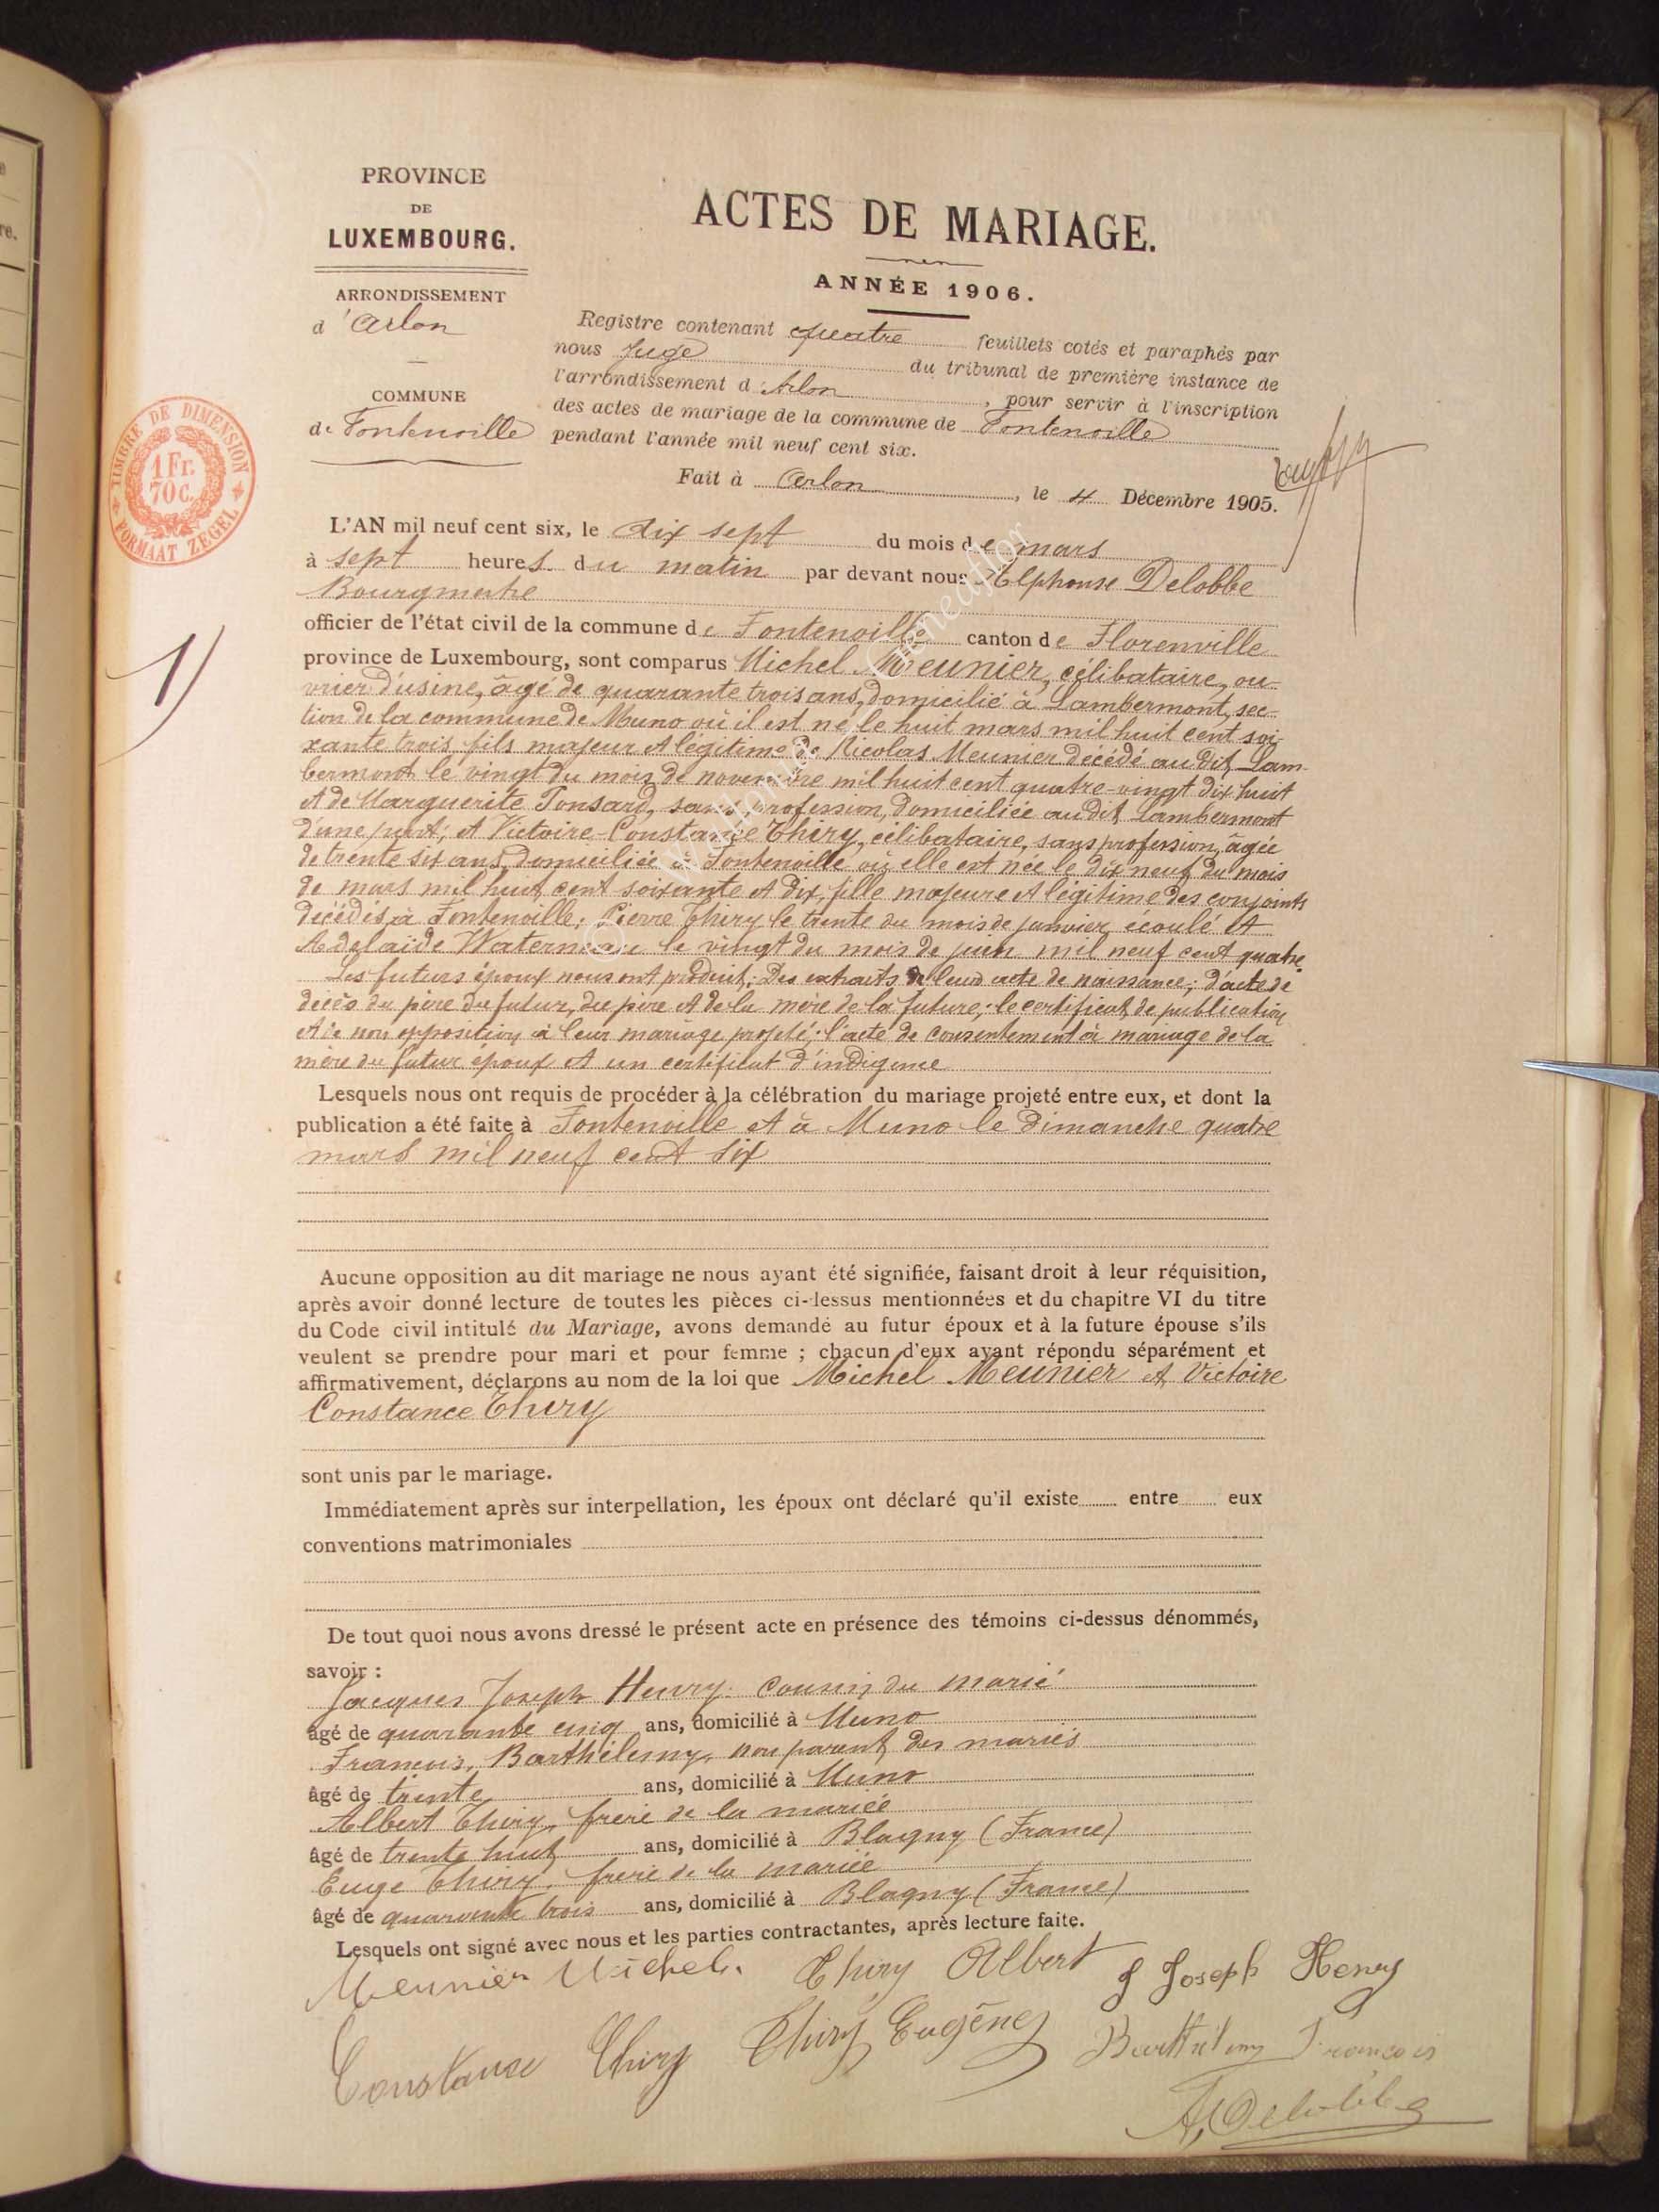 PROVINCE
DE
LUXEMBOURG.
ARRONDISSEMENT
d'Arlon
COMMUNE
de Fontenoille
TIMBRE DE DIMENSION
1 Fr.
70 c.
FORMAAT ZEGEL
ACTES DE MARIAGE.
ANNÉE 1906.
Registre contenant quatre feuillets cotés et paraphés par
nous Juge du tribunal de première instance de
l'arrondissement d'Arlon, pour servir à l'inscription
des actes de mariage de la commune de Fontenoille
pendant l'année mil neuf cent six.
Fait à Arlon, le 4 Décembre 1905.
1)
L'AN mil neuf cent six, le dix sept du mois de mars
à sept heures du matin par devant nous Alphonse Delobbe
Bourgmestre
officier de l'état civil de la commune de Fontenoille canton de Florenville
province de Luxembourg, sont comparus Michel Meunier, célibataire, ou-
vrier d'usine, âgé de quarante trois ans, domicilié à Lambermont, sec-
tion de la commune de Muno où il est né le huit mars mil huit cent soi-
xante trois fils majeur et légitime de Nicolas Meunier décédé au dit Lam-
bermont le vingt du mois de novembre mil huit cent quatre-vingt dix huit
et de Marguerite Ponsard, sans profession, domiciliée au dit Lambermont
d'une part; et Victoire-Constance Thiry, célibataire, sans profession, âgée
de trente six ans, domiciliée à Fontenoille où elle est née le dix neuf du mois
de mars mil huit cent soixante et dix, fille majeure et légitime des conjoints
décédés à Fontenoille; Pierre Thiry le trente du mois de janvier écoulé et
Adelaïde Waterneau le vingt du mois de juin mil neuf cent quatre
Les futurs époux nous ont produit: Des extraits de leurs acte de naissance; d'acte de
décès du père du futur, du père et de la mère de la future; le certificat de publication
et de non opposition à leur mariage projeté; l'acte de consentement à mariage de la
mère du futur époux et un certificat d'indigence
Lesquels nous ont requis de procéder à la célébration du mariage projeté entre eux, et dont la
publication a été faite à Fontenoille et à Muno le dimanche quatre
mars mil neuf cent six
Aucune opposition au dit mariage ne nous ayant été signifiée, faisant droit à leur réquisition,
après avoir donné lecture de toutes les pièces ci-dessus mentionnées et du chapitre VI du titre
du Code civil intitulé du Mariage, avons demandé au futur époux et à la future épouse s'ils
veulent se prendre pour mari et pour femme ; chacun d'eux ayant répondu séparément et
affirmativement, déclarons au nom de la loi que Michel Meunier et Victoire
Constance Thiry
sont unis par le mariage.
Immédiatement après sur interpellation, les époux ont déclaré qu'il existe entre eux
conventions matrimoniales
De tout quoi nous avons dressé le présent acte en présence des témoins ci-dessus dénommés,
savoir :
Jacques Joseph Henry, cousin du marié
âgé de quarante cinq ans, domicilié à Muno
François, Barthélemy, non parent des mariés
âgé de trente ans, domicilié à Muno
Albert Thiry, frère de la mariée
âgé de trente huit ans, domicilié à Blagny (France)
Euge Thiry, frère de la mariée
âgé de quarante trois ans, domicilié à Blagny (France)
Lesquels ont signé avec nous et les parties contractantes, après lecture faite.
Meunier Michel. Thiry Albert J Joseph Henry
Constance Thiry Thiry Eugène Barthélemy François
A, Delobbe